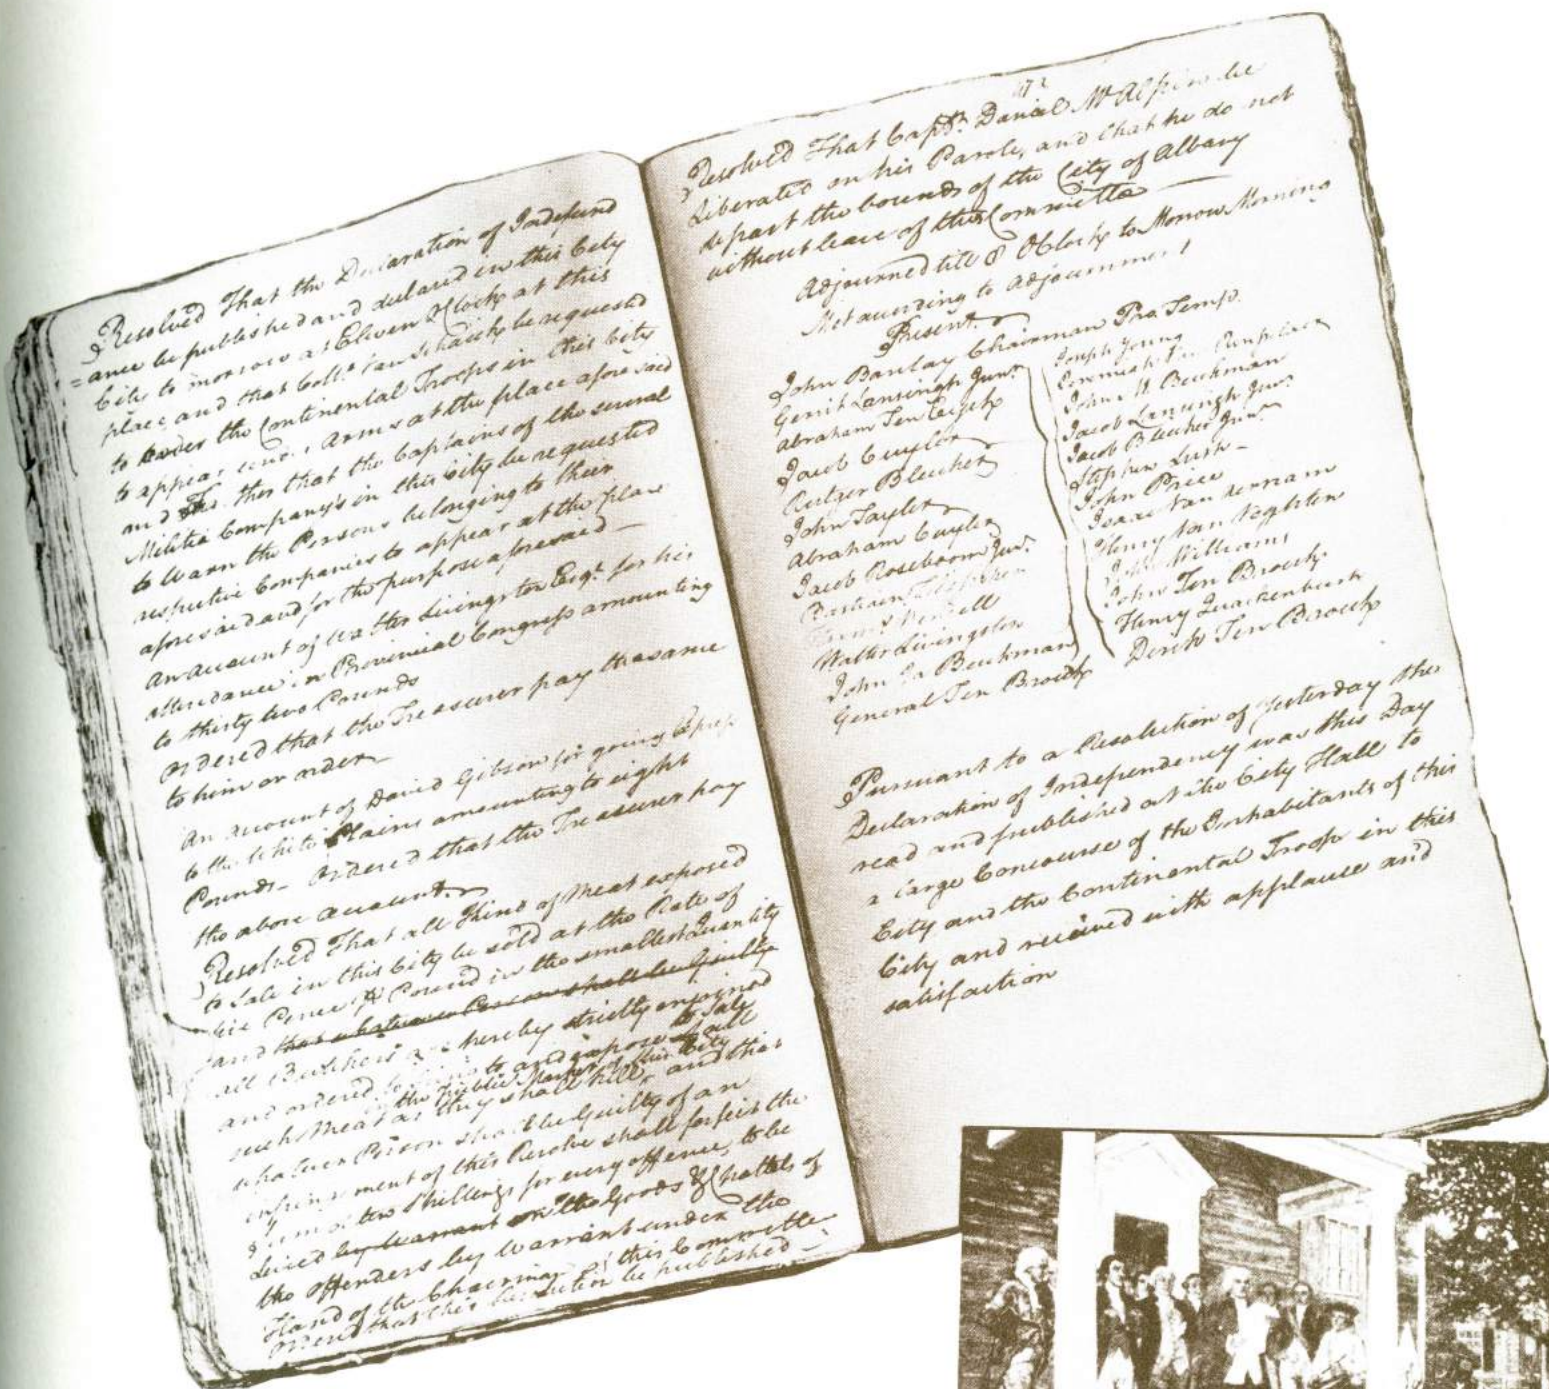 Resolved That the Declaration of Independ
=ance be published and declared in this City
City to morrow at Eleven OClock at this
place, and that Coll.º Van Schaick be requested
to Order the Continental Troops in this City
to appear under Arms at the place afore said
and further that the Captains of the several
Militia Company's in this City be requested
to Warn the Persons belonging to their
respective Companies to appear at the place
aforesaid and for the purpose aforesaid —
An account of Walter Livingston Esqr. for his
attendance in Provincial Congress amounting
to thirty two Pounds
Ordered that the Treasurer pay the same
to him or order
An account of David Gibson for going Express
to the White Plains amounting to eight
Pounds — Ordered that the Treasurer pay
the above account
Resolved That all Kind of Meat exposed
to Sale in this City be sold at the Rate of
Pence ℔ Pound in the smallest Quantity
and that whatever Person shall be Guilty
all Butchers are hereby strictly enjoined
and ordered to and expose to Sale all
in the Public Market of this City
such Meat as they shall kill, and that
whatever Person shall be Guilty of an
infringement of this Resolve shall forfeit the
Sum of two Shillings for every offence, to be
levied by Warrant on the Goods & Chattels of
the offenders by Warrant under the
Hand of the Chairman of this Committee
Ordered that this Resolution be published —
Resolved That Capt.n Daniel McAlpin be
Liberated on his Parole, and that he do not
depart the bounds of the City of Albany
without leave of this Committee —
Adjourned till 8 OClock to Morrow Morning
Met according to Adjournment
Present
John Barclay Chairman Pro. Temp.
Gerrit Lansingh Junr.
Abraham Ten Eyck
Jacob Cuyler
Rutger Bleecker
John Taylor
Abraham Cuyler
Jacob Roseboom Junr.
Harms. Wendell
Walter Livingston
John Ja Beeckman
General Ten Broeck
Joseph Young
Jeremiah Van Rensselaer
John M Beeckman
Jacob Lansingh Junr.
Jacob Bleecker Junr.
Stephen Lush —
John Price
Isaac Van Aernam
Henry Van Veghten
John Williams
John Ten Broeck
Henry Quackenbush
Dirck Ten Broeck
Pursuant to a Resolution of Yesterday the
Declaration of Independency was this Day
read and published at the City Hall to
a large Concourse of the Inhabitants of this
City and the Continental Troops in this
City and received with applause and
satisfaction